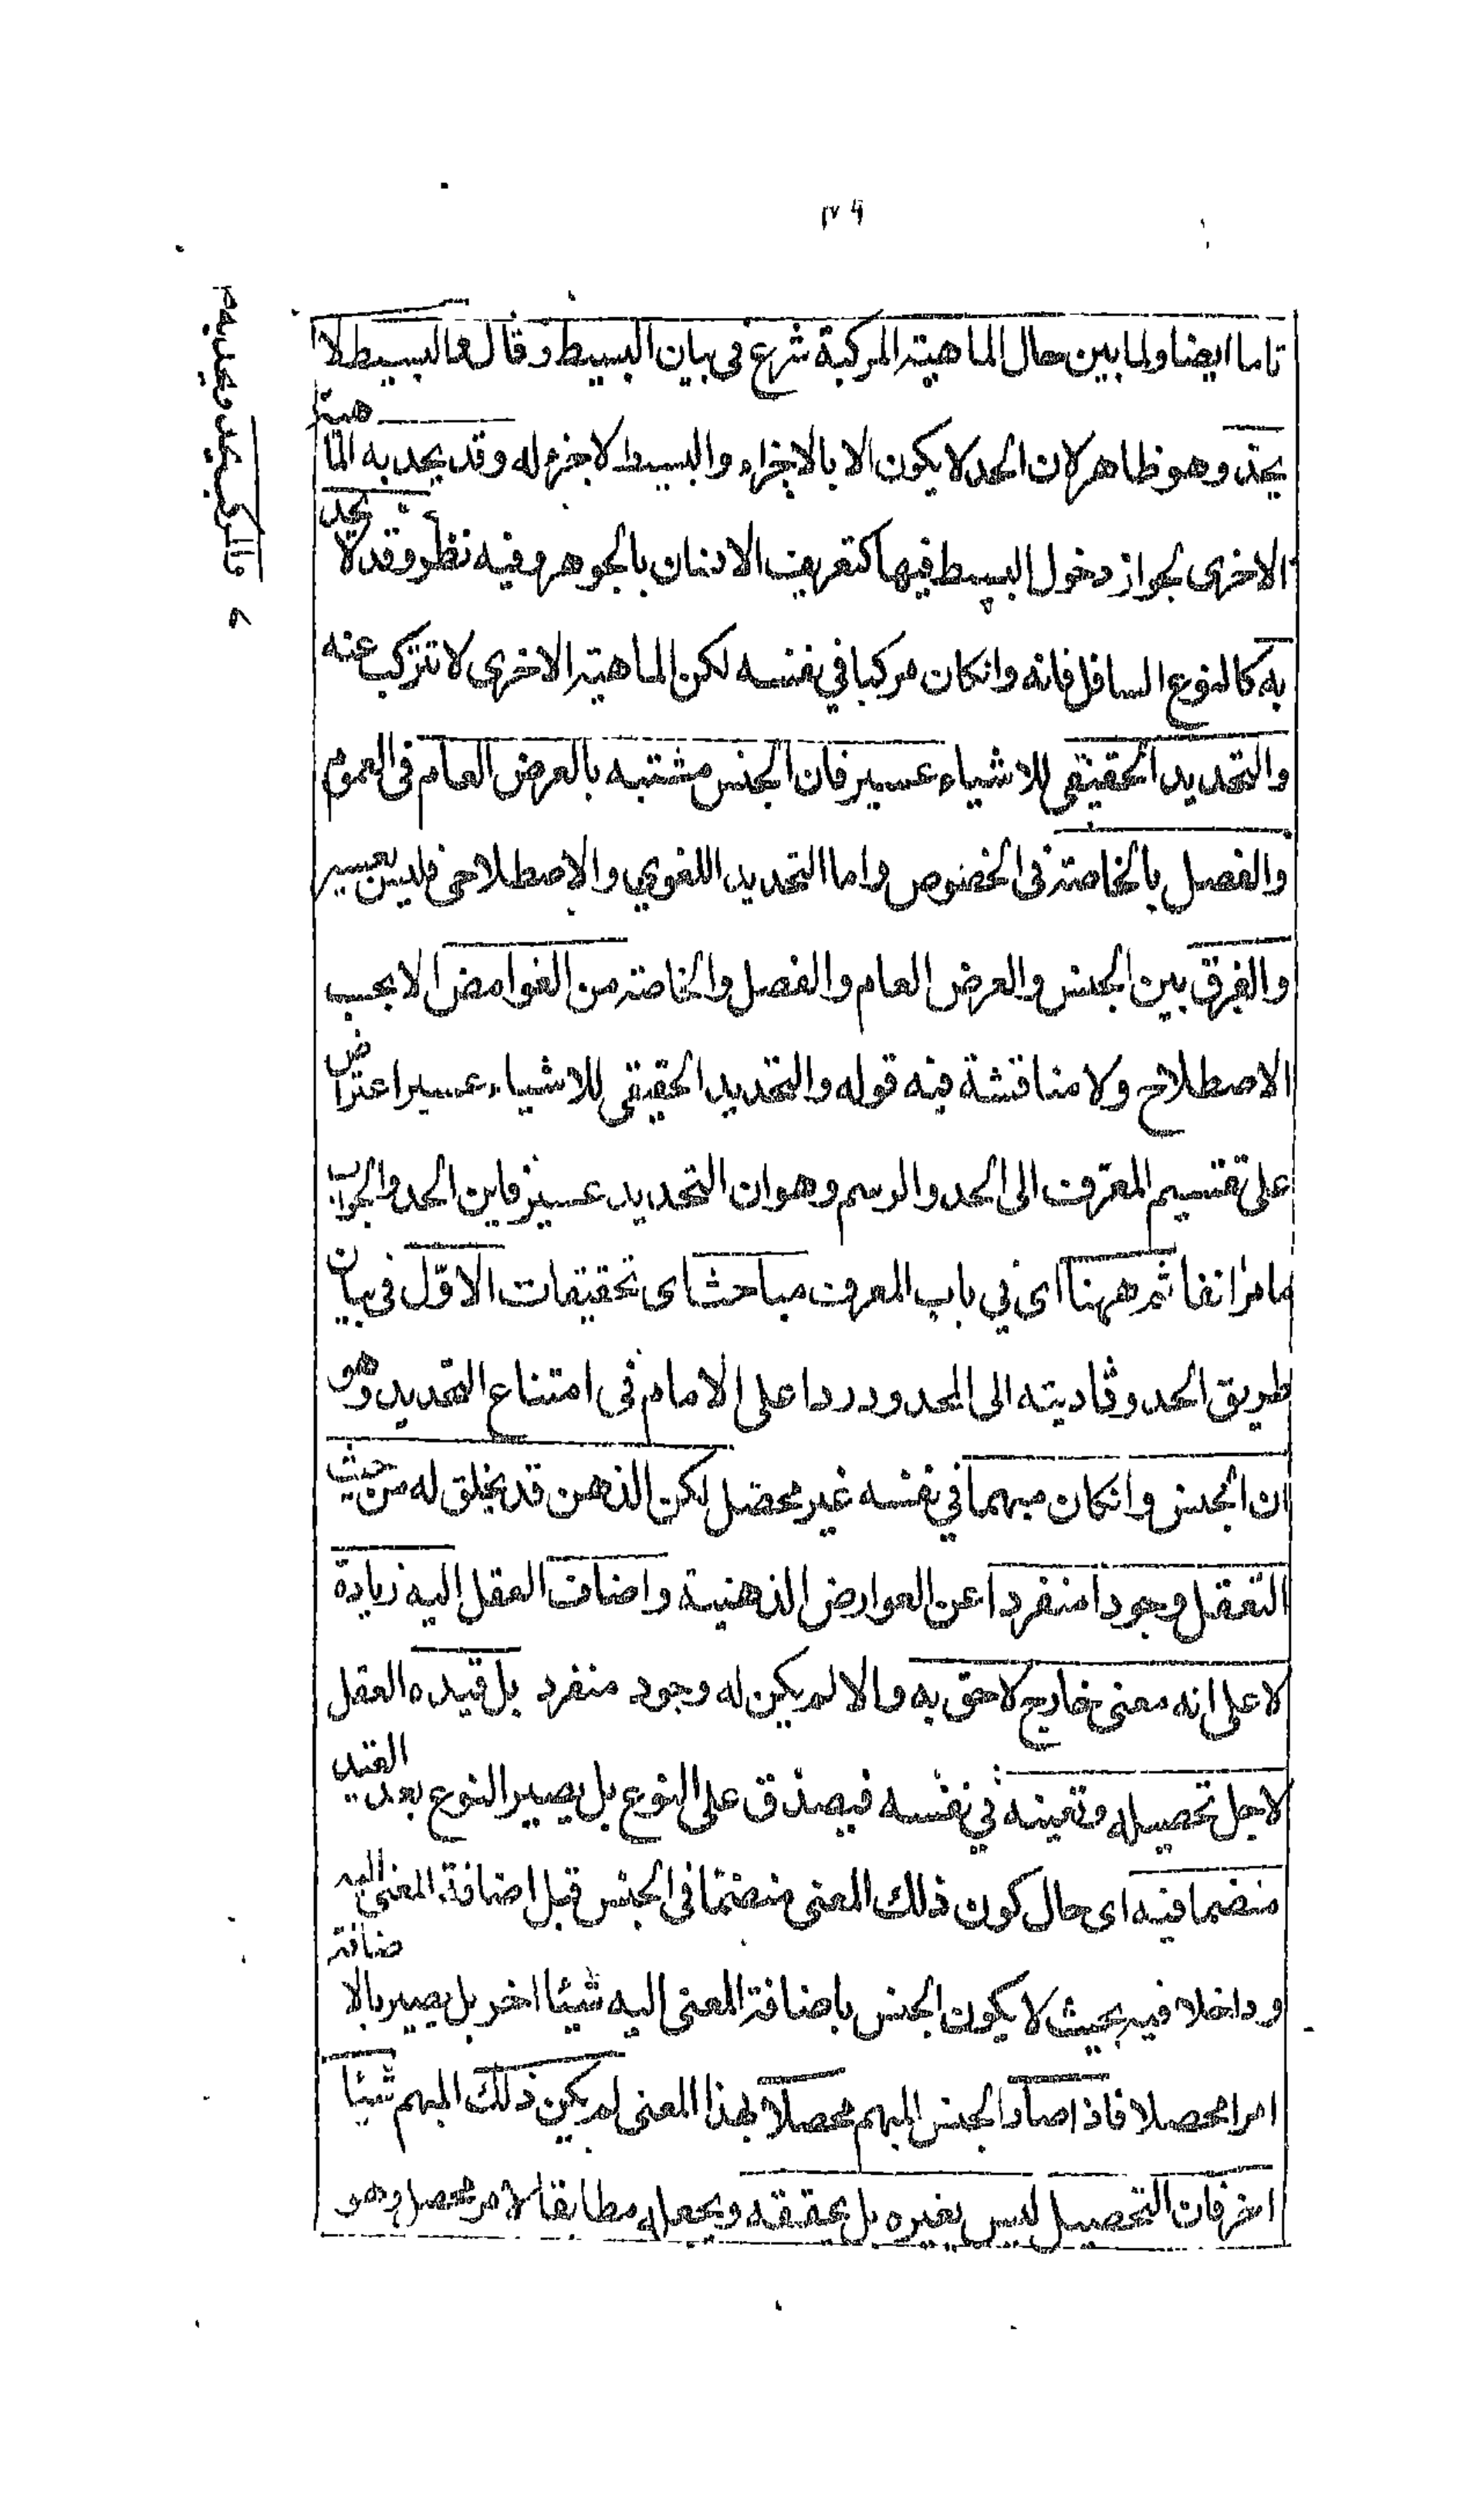 ١٧٩
تاما ايضا ولما بين حال الماهية المركبة شرع في بيان البسيط وقال فالبسيط لا
يحد وهو ظاهر لان الحد لا يكون الا بالاجزاء والبسيط لا جزء له وقد يحد به الماهية
الاخرى لجواز دخول البسيط فيها كتعريف الانسان بالجوهر وفيه نظر وقد لا يحد
به كالنوع السافل فانه وانكان مركبا في نفسه لكن الماهية الاخرى لا تتركب عنه
والتحديد الحقيقي للاشياء عسير فان الجنس مشتبه بالعرض العام في العموم
والفصل بالخاصة في الخصوص واما التحديد اللغوي والاصطلاحي فليس بعسير
والفرق بين الجنس والعرض العام والفصل والخاصة من الغوامض الا بحسب
الاصطلاح ولا مناقشة فيه قوله والتحديد الحقيقي للاشياء عسير اعتراض
على تقسيم المعرف الى الحد والرسم وهو ان التحديد عسير فاين الحد والجواب
ما مر انفا ثم ههنا اى في باب المعرف مباحث اى تحقيقات الاوّل في بيان
طريق الحد وتاديته الى المحدود ردا على الامام في امتناع التحديد وهو
ان الجنس وانكان مبهما في نفسه غير محصل لكن الذهن قد يخلق له من حيث
التعقل وجودا منفردا عن العوارض الذهنية واضاف العقل اليه زيادة
لا على انه معنى خارج لاحق به والا لم يكن له وجود منفرد بل قيده العقل
لاجل تحصيله وتعينه في نفسه فيصدق على النوع بل يصير النوع بعد القيد
منضما فيه اى حال كون ذلك المعنى منضمّا في الجنس قبل اضافة المعنى اليه
وداخلا فيه بحيث لا يكون الجنس باضافة المعنى اليه شيئا اخر بل يصير بالاضافة
امرا محصلا فاذا صار الجنس المبهم محصلا بهذا المعنى لم يكن ذلك المبهم شيئا
اخر فان التحصيل ليس يغيره بل يحققه ويجعله مطابقا لامر محصل وهو
والمركب يحد ويحد به